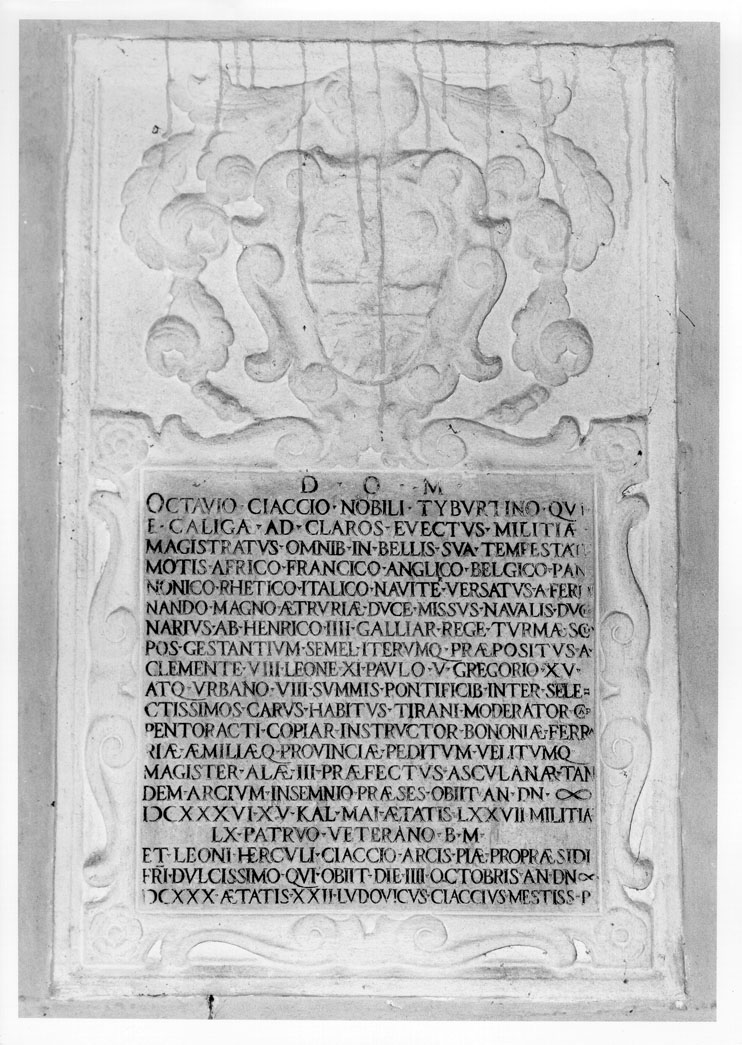 D · O · M
OCTAVIO · CIACCIO · NOBILI · TYBVRTINO · QVI
E · CALIGA · AD · CLAROS · EVECTVS · MILITIÆ
MAGISTRATVS · OMNIB · IN · BELLIS · SVA · TEMPESTATE
MOTIS · AFRICO · FRANCICO · ANGLICO · BELGICO · PAN
NONICO · RHETICO · ITALICO · NAVITE · VERSATVS · A FERDI
NANDO · MAGNO · ÆTRVRIÆ · DVCE · MISSVS · NAVALIS · DVCE
NARIVS · AB · HENRICO · IIII · GALLIAR · REGE · TVRMÆ SCO
POS · GESTANTIVM · SEMEL · ITERVMQ · PRÆPOSITVS · A
CLEMENTE · VIII · LEONE · XI · PAVLO · V · GREGORIO · XV ·
ATQ · VRBANO · VIII · SVMMIS · PONTIFICIB · INTER · SELE=
CTISSIMOS · CARVS · HABITVS · TIRANI · MODERATOR ·
PENTORACTI · COPIAR · INSTRVCTOR · BONONIÆ · FERRA
RIÆ · ÆMILIÆQ · PROVINCIÆ · PEDITVM · VELITVMQ
MAGISTER · ALÆ · III · PRÆFECTVS · ASCVLANÆ · TAN
DEM · ARCIVM · INSEMNIO · PRÆSES · OBIIT · AN · DN · ∞
IƆCXXXVI · XV · KAL · MAI · ÆTATIS · LXXVII MILITIÆ
LX · PATRVO · VETERANO · B · M
ET · LEONI · HERCVLI · CIACCIO · ARCIS · PIÆ · PROPRÆSIDI
FRI · DVLCISSIMO · QVI · OBIIT · DIE · IIII · OCTOBRIS · AN · DN ∞
IƆCXXX · ÆTATIS · XXII · LVDOVICVS · CIACCIVS · MESTISS · P